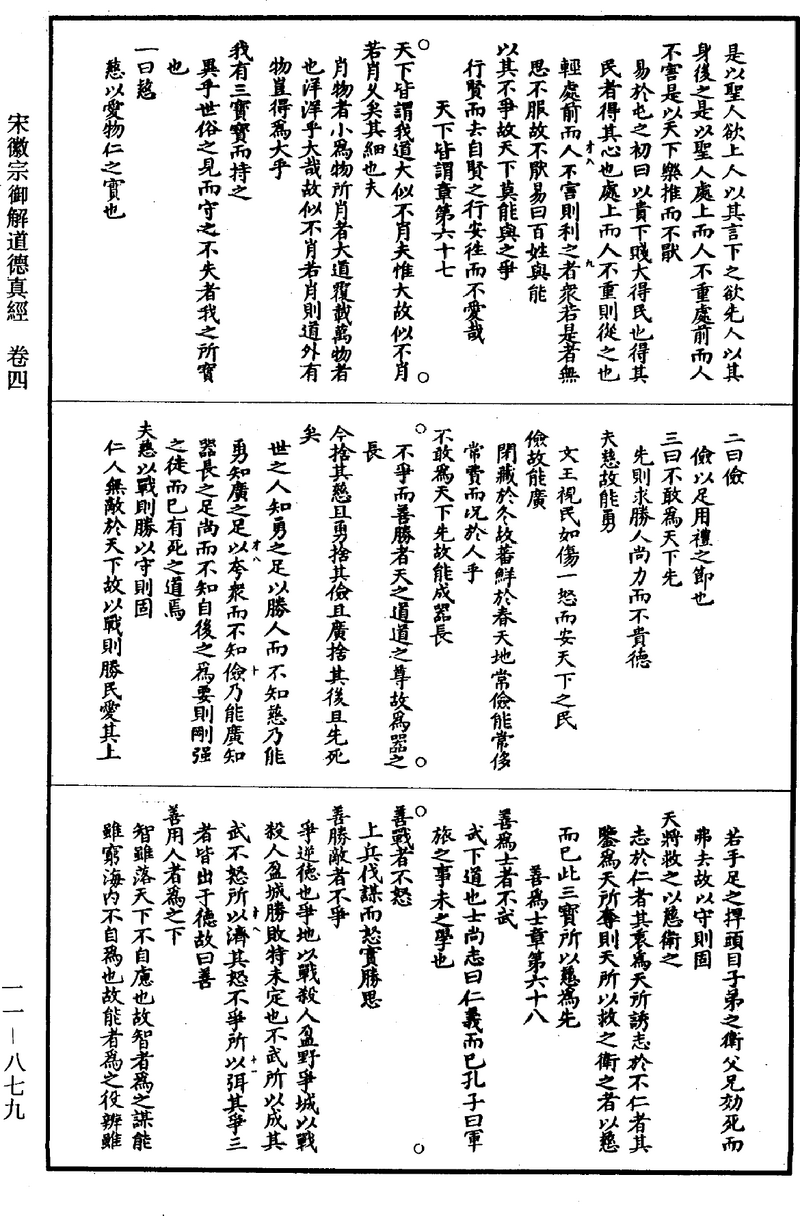 是以聖人欲上人以其言下之欲先人以其
身後之是以聖人處上而人不重處前而人
不害是以天下樂推而不猒
易於屯之初曰以貴下賤大得民也得其
民者得其心也處上而人不重則從之也
輕處前而人不害則利之者衆若是者無
思不服故不猒易曰百姓與能
以其不爭故天下莫能與之爭
行賢而去自賢之行安往而不愛哉
天下皆謂章第六十七
天下皆謂我道大似不肖夫惟大故似不肖
若肖久矣其細也夫
肖物者小為物所肖者大道覆載萬物者
也洋洋乎大哉故似不肖若肖則道外有
物豈得為大乎
我有三寶寶而持之
異乎世俗之見而守之不失者我之所寶
也
一曰慈
慈以愛物仁之實也
二曰儉
儉以足用禮之節也
三曰不敢為天下先
先則求勝人尚力而不貴德
夫慈故能勇
文王視民如傷一怒而安天下之民
儉故能廣
閉藏於冬故蕃鮮於春天地常儉能常侈
常費而况於人乎
不敢為天下先故能成器長
不爭而善勝者天之道道之尊故為器之
長
今捨其慈且勇捨其儉且廣捨其後且先死
矣
世之人知勇之足以勝人而不知慈乃能
勇知廣之足以夸衆而不知儉乃能廣知
器長之足尚而不知自後之為要則剛强
之徒而已有死之道焉
夫慈以戰則勝以守則固
仁人無敵於天下故以戰則勝民愛其上
若手足之捍頭目子弟之衛父兄効死而
弗去故以守則固
天將救之以慈衛之
志於仁者其衷為天所誘志於不仁者其
鑒為天所奪則天所以救之衛之者以慈
而已此三寶所以慈為先
善為士章第六十八
善為士者不武
武下道也士尚志曰仁義而已孔子曰軍
旅之事未之學也
善戰者不怒
上兵伐謀而怒實勝思
善勝敵者不爭
爭逆德也爭地以戰殺人盈野爭城以戰
殺人盈城勝敗特未定也不武所以成其
武不怒所以濟其怒不爭所以弭其爭三
者皆出于德故曰善
善用人者為之下
智雖落天下不自慮也故智者為之謀能
雖窮海内不自為也故能者為之役辨雖
宋徽宗御解道德真經　卷四
一一－八七九
才八
九
才八
十
才八
十一